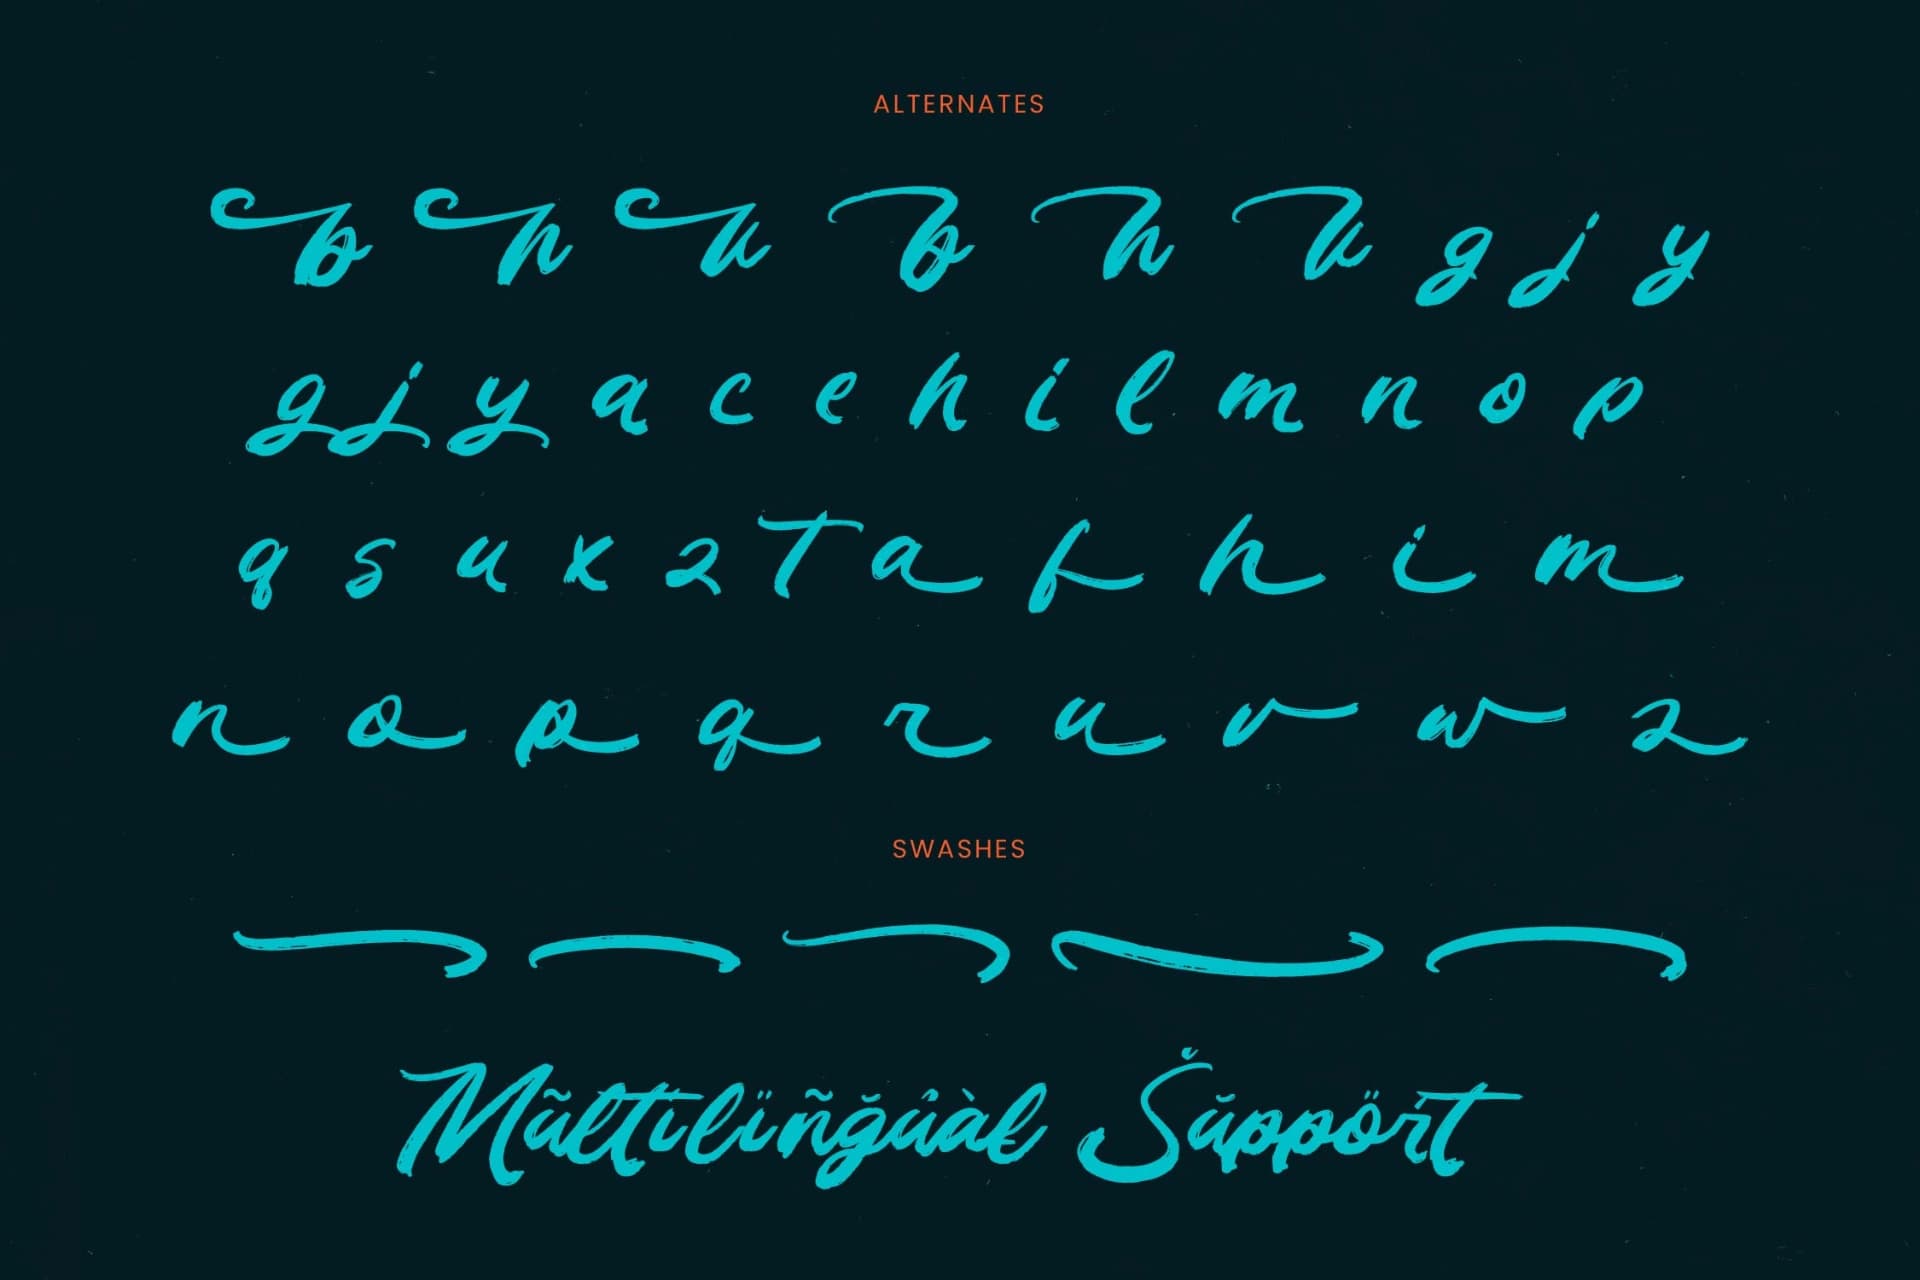 ALTERNATES
b h k b h k g j y
g j y a c e h i l m n o p
q s u x z T a f h i m
n o p q r u v w z
SWASHES
Mũltïlïñğûàl Sŭppört